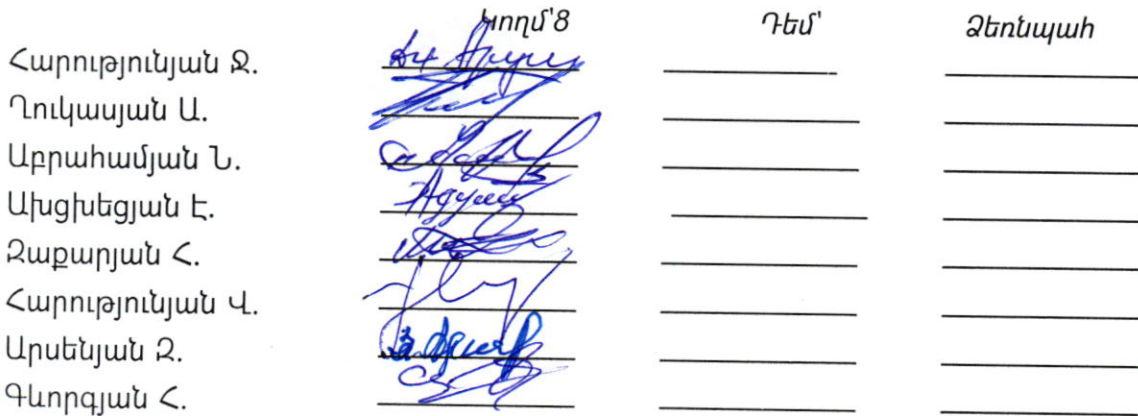 Կողմ՝8 Դեմ՝ Ձեռնպահ
Հարությունյան Ջ.
Ղուկասյան Ա.
Աբրահամյան Ն.
Ախցխեցյան Է.
Զաքարյան Հ.
Հարությունյան Վ.
Արսենյան Զ.
Գևորգյան Հ.